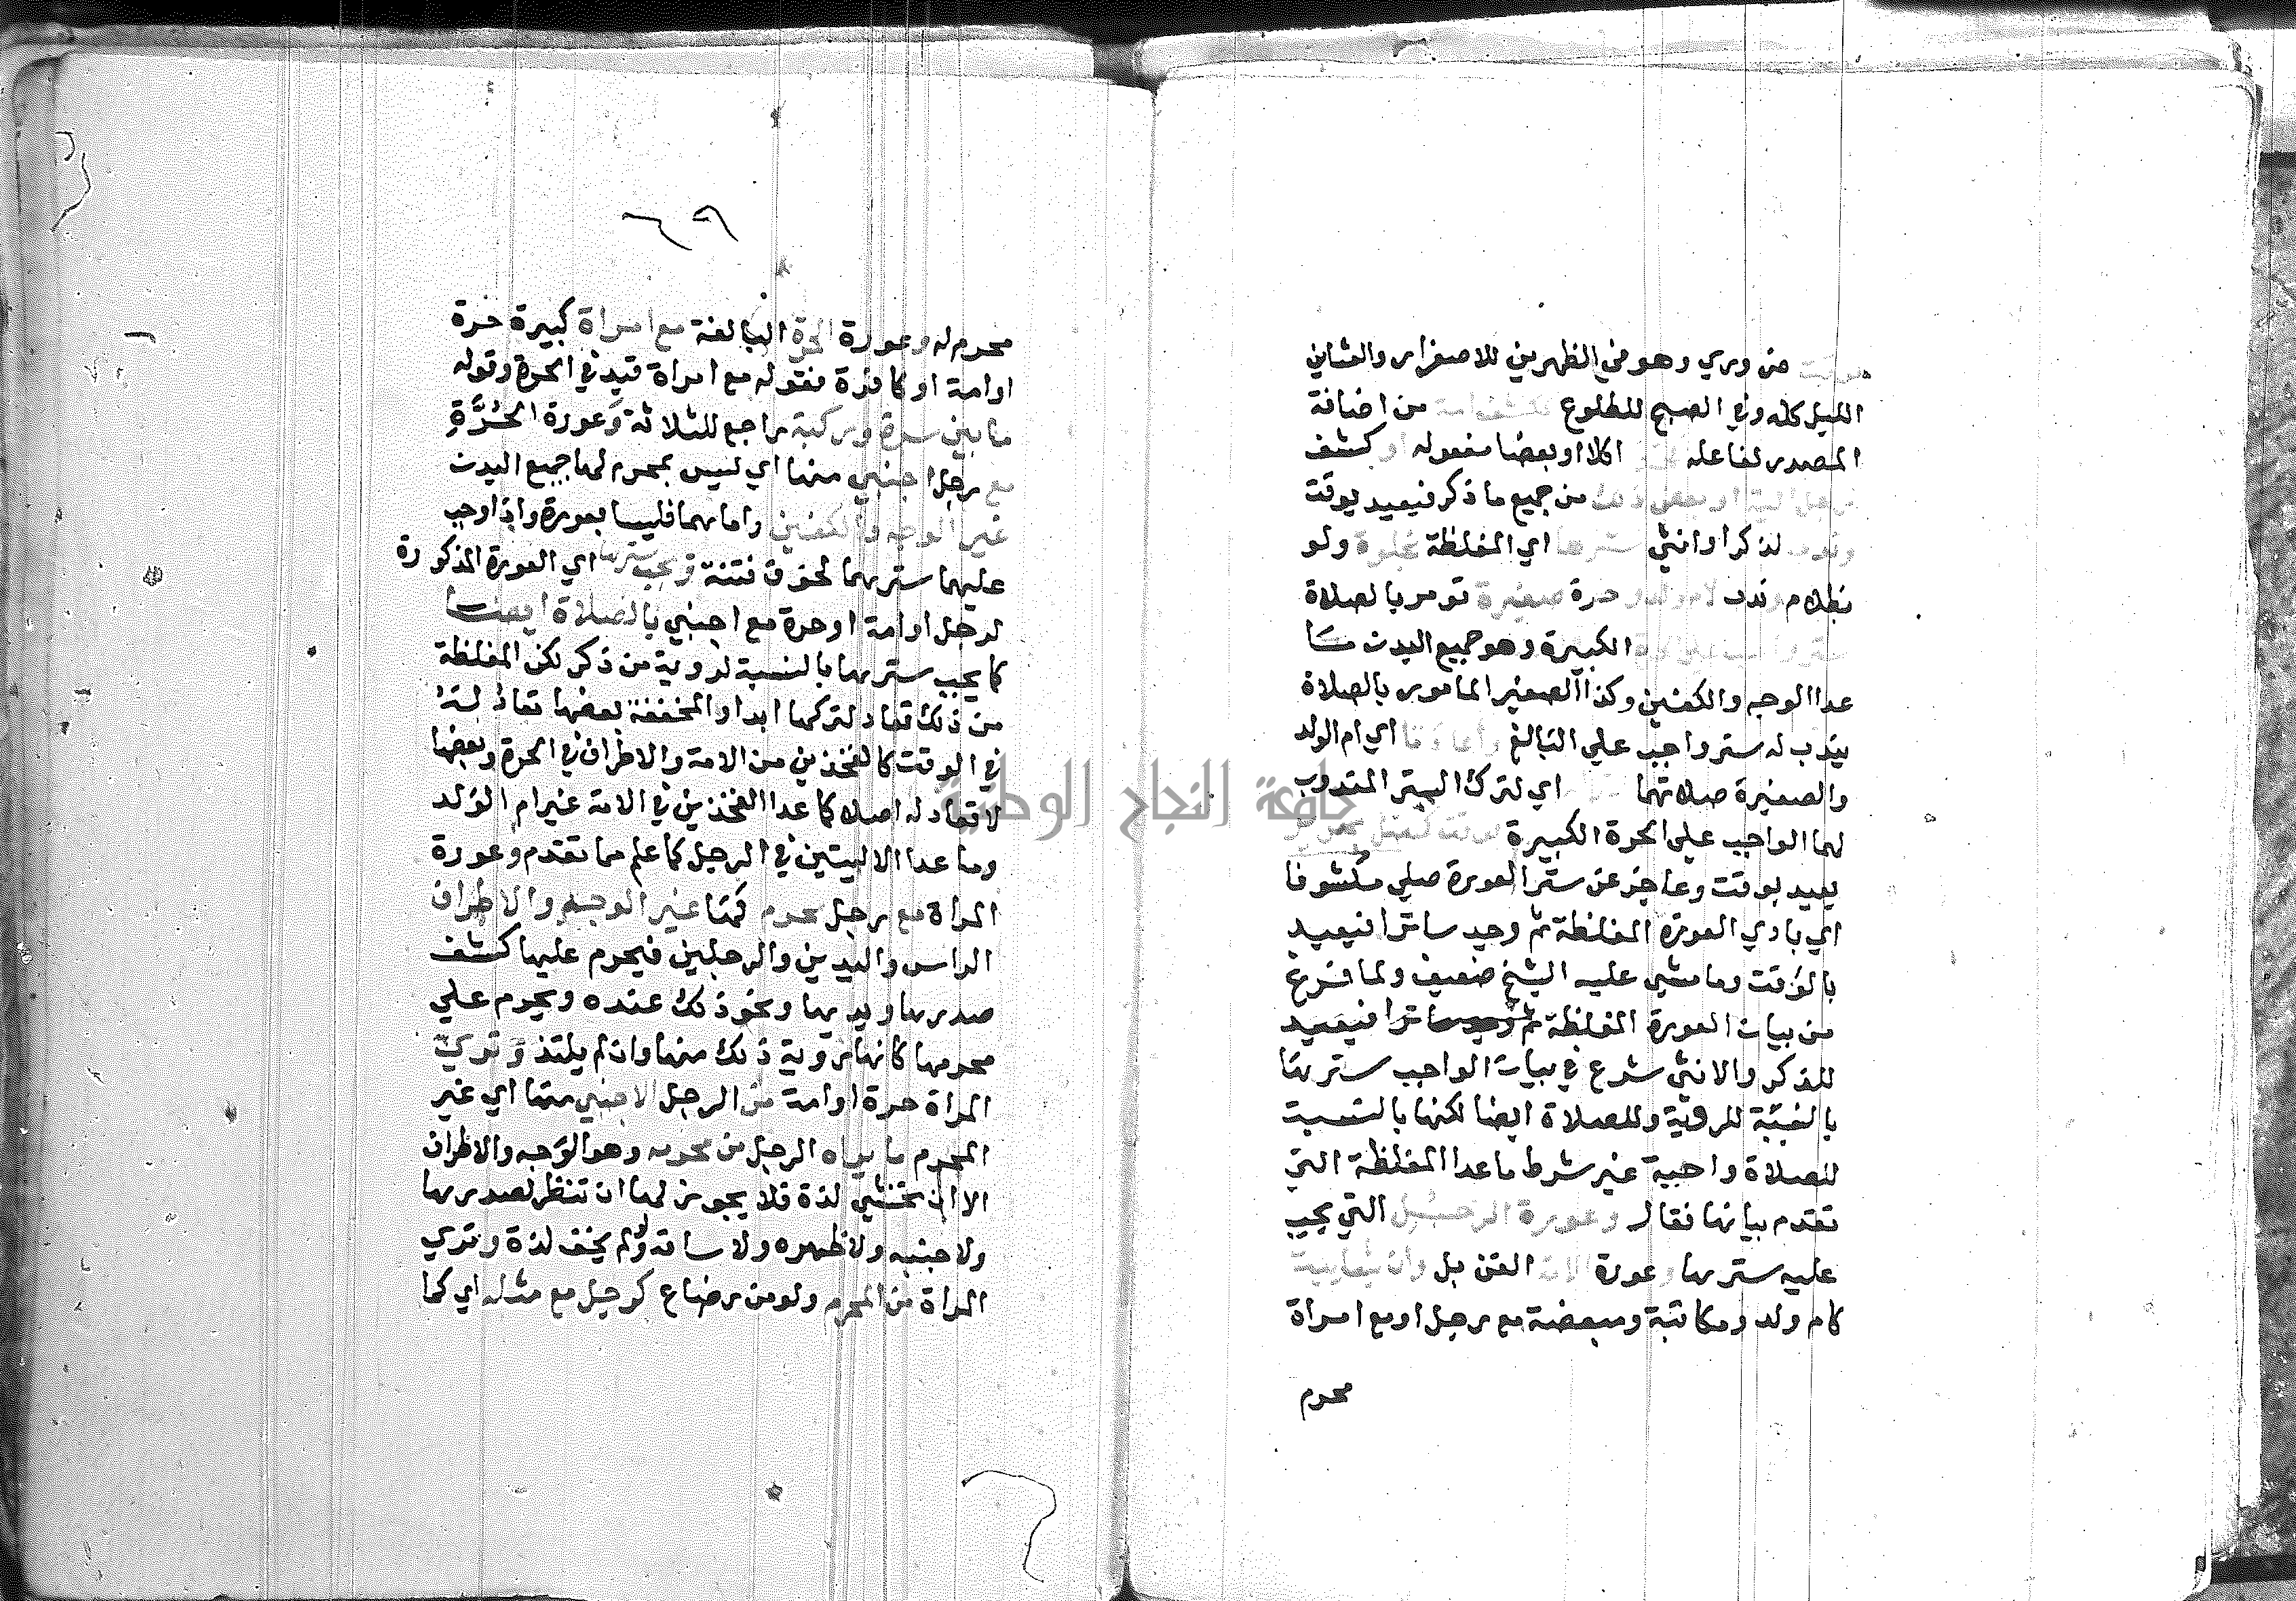 من وري وهو في الظهرين للاصفرار والعشاين
الليل كله وفي الصبح للطلوع من اضافة
المصدر لفاعله اكلا او بعضا مفعوله او كشف
من جميع ما ذكر فيعيد بوقت
لذكر او انثي سترها اي المغلظة بخلوة ولو
بظلام وندب لام ولد وحرة صغيرة تومر بالصلاة
الكبيرة وهو جميع البدن ما
عدا الوجه والكفين وكذا الصغير المامور بالصلاة
يندب له ستر واجب علي البالغ وأعادتا اي ام الولد
والصغيرة صلاتهما اي لترك الستر المندوب
لهما الواجب علي الحرة الكبيرة
يعيد بوقت وعاجز عن ستر العورة صلي مكشوفا
اي بادي العورة المغلظة ثم وجد ساترا فيعيد
بالوقت وما مشي عليه الشيخ ضعيف ولما فرغ
من بيان العورة المغلظة ثم وجد ساترا فيعيد
للذكر والانثي شرع في بيان الواجب سترها
بالنسبة للروية وللصلاة ايضا لكنها بالنسبة
للصلاة واجبة غير شرط ما عدا المغلظة التي
تقدم بيانها فقال وعورة الرجل التي يجب
عليه سترها وعورة الامة القن بل وان بشايبة
كام ولد ومكاتبة ومبعضة مع رجل او مع امراة
محرم
٦٩
محرم له وعورة الحرة البالغة مع امراة كبيرة حرة
او امة او كافرة فقوله مع امراة قيد في الحرة وقوله
ما بين سرة وركبة راجع للثلاثة وعورة الحُرَّةِ
مع رجل اجنبي منها اي ليس بمحرم لها جميع البدن
غير الوجه والكفين واما هما فليسا بعورة وان وجب
عليها سترهما لخوف فتنة ويجب سترها اي العورة المذكورة
لرجل او امة او حرة مع اجنبي بالصلاة ايضا
كما يجب سترها بالنسبة لروية من ذكر لكن المغلظة
من ذلك تعاد لتركها ابدا والمخففة بعضها تعاد له
في الوقت كالفخذين من الامة والاطراف في الحرة وبعضها
لا تعاد له اصلا كما عدا الفخذين في الامة غير ام الولد
وما عدا الاليتين في الرجل كما علم مما تقدم وعورة
المراة مع رجل محرم لها غير الوجه والاطراف
الراس واليدين والرجلين فيحرم عليها كشف
صدرها ويديها ونحو ذلك عنده ويحرم علي
محرمها كابنها روية ذلك منها وان لم يلتذ وتري
المراة حرة او امة من الرجل الاجنبي منها اي غير
المحرم ما يراه الرجل من محرمه وهو الوجه والاطراف
الا ان تخشي لذة فلا يجوز لها ان تنظر لصدرها
ولا جنبه ولا ظهره ولا ساقه ولو لم يخف لذة وتري
المراة من المحرم ولو من رضاع كرجل مع مثله اي كما
جامعة النجاح الوطنية